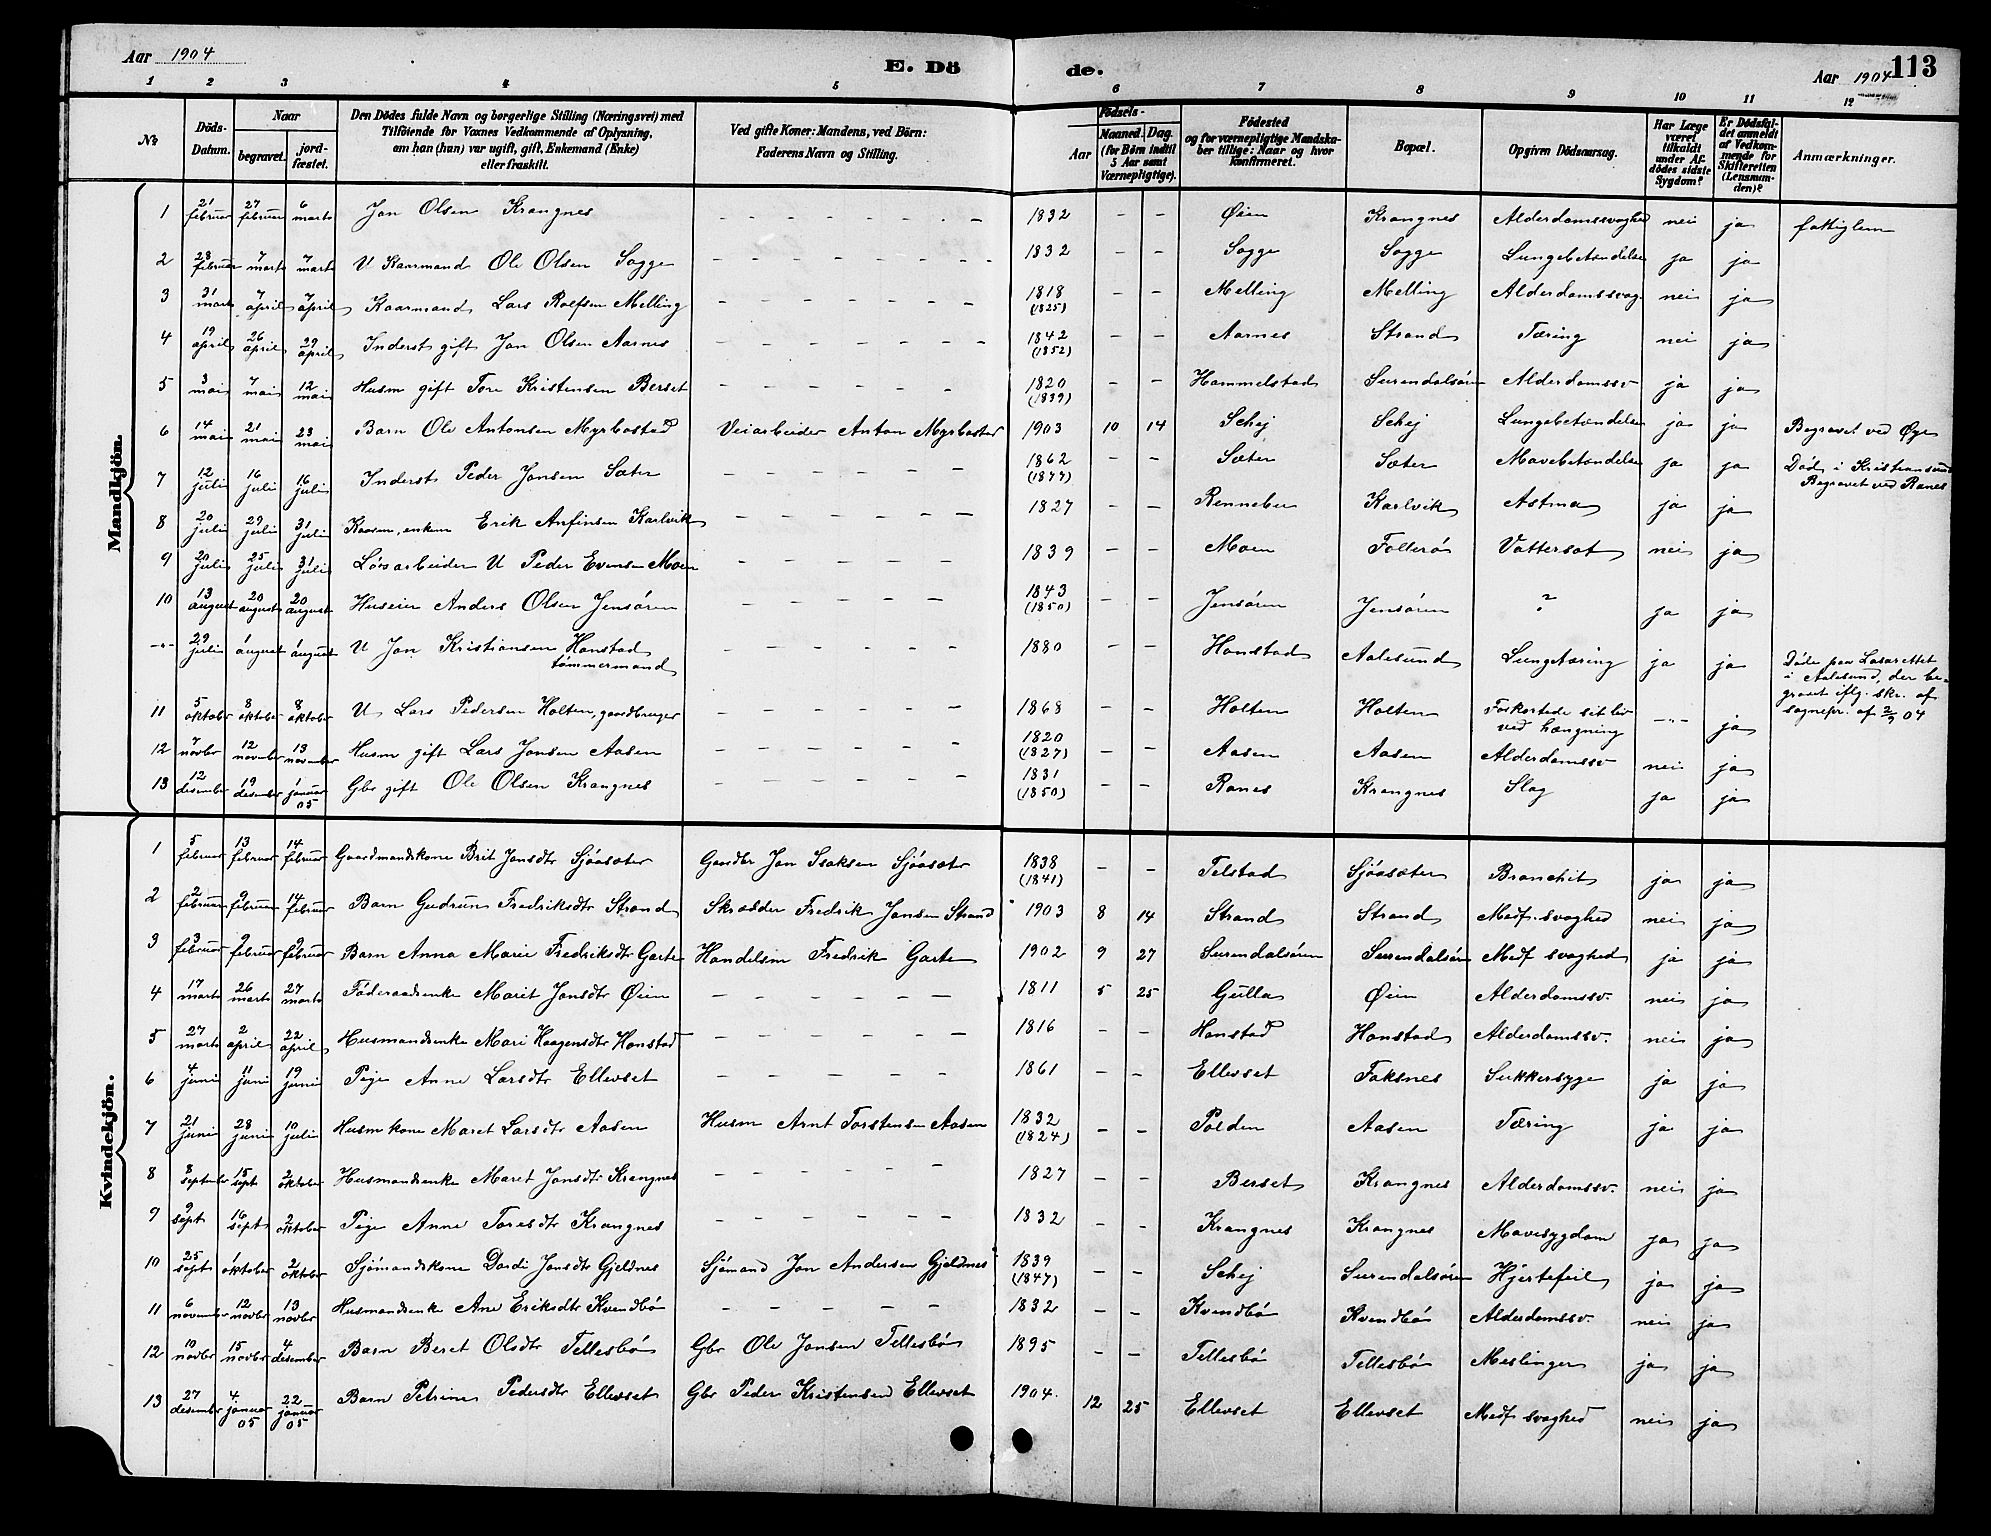 Aar 1904
E. Dö de.
Aar 1904 113
1 2 3 4 5 6 7 8 9 10 11 12
No. Döds-Datum. Naar begravet. jord-fæstet. Den Dödes fulde Navn og borgerlige Stilling (Næringsvei) med Tilföiende for Voxnes Vedkommende af Oplysning, om han (hun) var ugift, gift, Enkemand (Enke) eller fraskilt. Ved gifte Koner: Mandens, ved Börn: Faderens Navn og Stilling. Födsels- Aar Maaned. Dag. (for Börn indtil 5 Aar samt Værnepligtige). Födested og for værnepligtige Mandskaber tillige: Naar og hvor konfirmeret. Bopæl. Opgiven Dödsaarsag. Har Læge været tilkaldt under Afdödes sidste Sygdom? Er Dödsfaldet anmeldt af Vedkommende for Skifteretten (Lensmanden)? Anmærkninger.
Mandkjön.
1 21 februar 27 februar 6 marts Jon Olsen Krangnes - - - - - - - 1832 - - Øien Krangnes Alderdomssvaghed nei ja fattiglem
2 28 februar 7 marts 7 marts U Kaarmand Ole Olsen Sogge - - - - - - - 1832 - - Sogge Sogge Lungebetændelse ja ja
3 31 marts 7 april 7 april Kaarmand Lars Rolfsen Melling - - - - - - - 1818 (1825) - - Melling Melling Alderdomssvag. nei ja
4 19 april 26 april 29 april Inderst gift Jon Olsen Aarnes - - - - - - - 1842 (1852) - - Aarnes Strand Tæring nei ja
5 3 mai 7 mai 12 mai Husm gift Tore Kristensen Berset - - - - - - 1820 (1839) - - Hammelstad Surendalsøren Alderdomssv ja ja
6 14 mai 21 mai 23 mai Barn Ole Antonsen Myrbostad Veiarbeider Anton Myrbostad 1903 10 14 Schej Schej Lungebetændelse ja ja Begravet ved Øye
7 12 juli 16 juli 16 juli Inderst Peder Jonsen Sæter - - - - - - 1862 (1877) - - Sæter Sæter Mavebetændelse ja ja Død i Kristiansund Begravet ved Ranes
8 20 juli 29 juli 31 juli Kaarm, enkem Erik Anfinsen Karlvik - - - - - - 1827 - - Rennebu Karlvik Astma ja ja
9 20 juli 25 juli 31 juli Løsarbeider U Peder Evensen Moen - - - - - - 1839 - - Moen Follerø Vattersot nei ja
10 13 august 20 august 20 august Huseier Anders Olsen Jensøren - - - - - - 1843 (1850) - - Jensøren Jensøren ? ja ja
-"- 29 juli 1 august 1 august U Jon Kristiansen Honstad tømmermand - - - - - - 1880 - - Honstad Aalesund Lungetæring ja ja Døde paa Lasarettet i Aalesund, der begravet iflg. skr. af sognepr. af 2/9 04
11 5 oktober 8 oktober 8 oktober U Lars Pedersen Holten, gaardbruger - - - - - - 1868 - - Holten Holten Forkortede sit liv ved hængning -"- ja
12 7 novbr 12 november 13 november Husm gift Lars Jonsen Aasen - - - - - - 1820 (1827) - - Aasen Aasen Alderdomssv nei ja
13 12 desember 19 desember 1 januar 05 Gbr gift Ole Olsen Krangnes - - - - - - 1831 (1850) - - Ranes Krangnes Slag ja ja
Kvindekjön.
1 5 februar 13 februar 14 februar Gaardmandskone Brit Jonsdtr Sjøasæter Gaardbr Jon Isaksen Sjøasætr 1838 (1841) - - Telstad Sjøasæter Bronchit ja ja
2 2 februar 9 februar 14 februar Barn Gudrun Fredriksdtr Strand Skrædder Fredrik Jonsen Strand 1903 8 14 Strand Strand Medf. svaghed nei ja
3 3 februar 9 februar 9 februar Barn Anna Marie Fredriksdtr Garte Handelsm Fredrik Garte 1902 9 27 Surendalsøren Surrendalsøren Medf svaghed ja ja
4 17 marts 26 marts 27 marts Føderaadsenke Marit Jonsdtr Øien - - - - - 1811 5 25 Gulla Øien Alderdomssv. nei ja
5 27 marts 2 april 22 april Husmandsenke Mari Haagensdtr Honstad - - - - - 1816 - - Honstad Honstad Alderdomssv. nei ja
6 4 juni 11 juni 19 juni Pige Anne Larsdtr Ellevset - - - - - 1861 - - Ellevset Foksnes Sukkersyge ja ja
7 21 juni 28 juni 10 juli Husm kone Maret Larsdtr Aasen Husm Arnt Torstensen Aasen 1832 (1824) - - Polden Aasen Tæring ja ja
8 8 september 15 sept 2 oktober Husmandsenke Maret Jonsdtr Krangnes - - - - - 1827 - - Berset Krangnes Alderdomssv. nei ja
9 9 sept 16 sept 2 oktober Pige Anne Toresdtr Krangnes - - - - - 1832 - - Krangnes Krangnes Mavesygdom ja ja
10 25 sept 1 oktober 2 oktober Sjømandskone Dordi Jonsdtr Gjeldnes Sjømand Jon Andersen Gjeldnes 1839 (1847) - - Schej Surendalsøren Hjertefeil ja ja
11 6 november 12 novbr 13 novbr Husmandsenke Ane Eriksdtr Kvendbø - - - - - 1832 - - Kvendbø Kvendbø Alderdomssv. nei ja
12 10 novbr 15 novbr 4 desember Barn Beret Olsdtr Tellesbø Gbr Ole Jonsen Tellesbø 1895 - - Tellesbø Tellesbø Meslinger ja ja
13 27 desember 4 januar 05 22 januar 05 Barn Petrine Pedersdtr Ellevset Gbr Peder Kristensen Ellevset 1904. 12 25 Ellevset Ellevset Medf svaghed nei ja